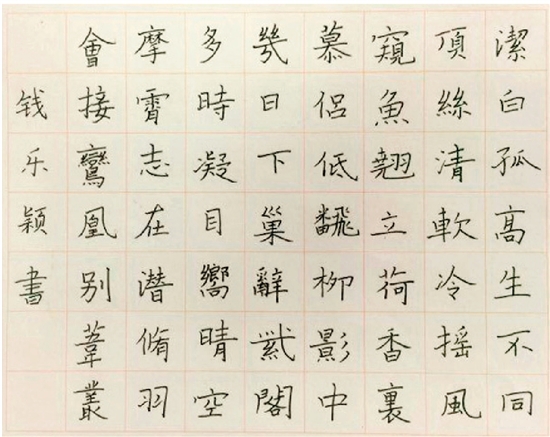 潔白孤高生不同
頂絲清軟冷摇風
窺魚翹立荷香裏
慕侣低飜柳影中
幾日下巢辭紫閣
多時凝目嚮晴空
摩霄志在潛脩羽
會接鸞凰别葦叢
钱乐颖書